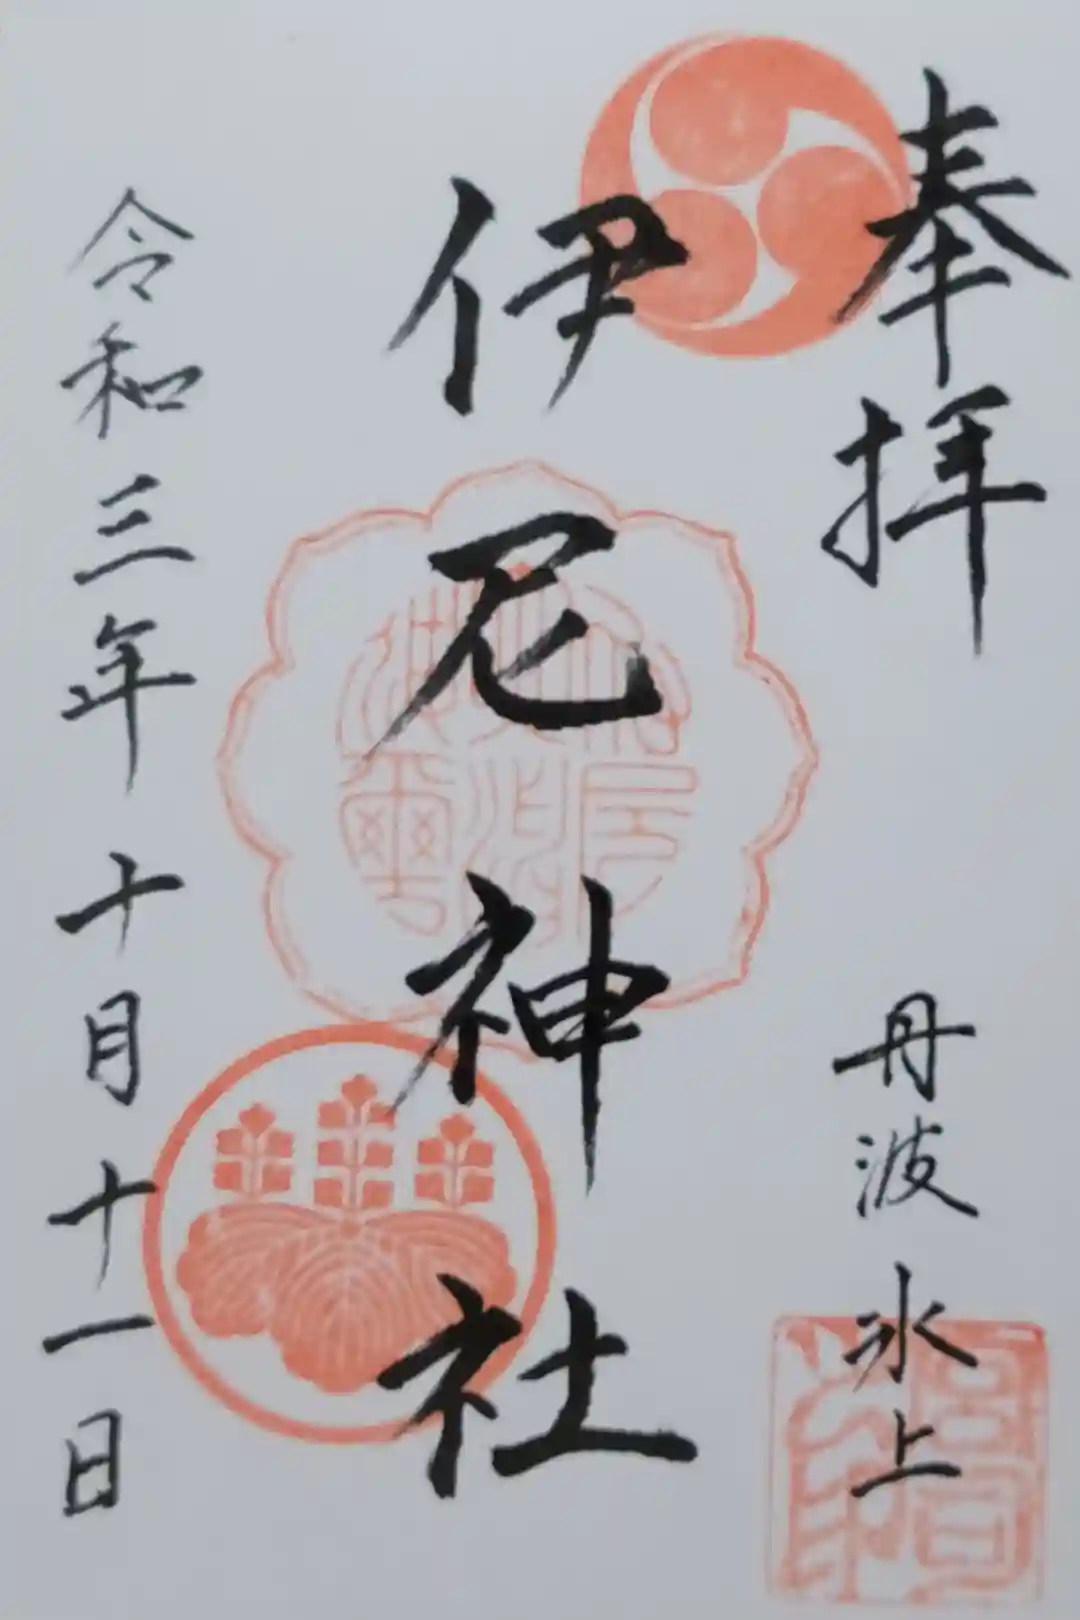 奉拝
丹波氷上
伊尼神社
令和三年十月十一日